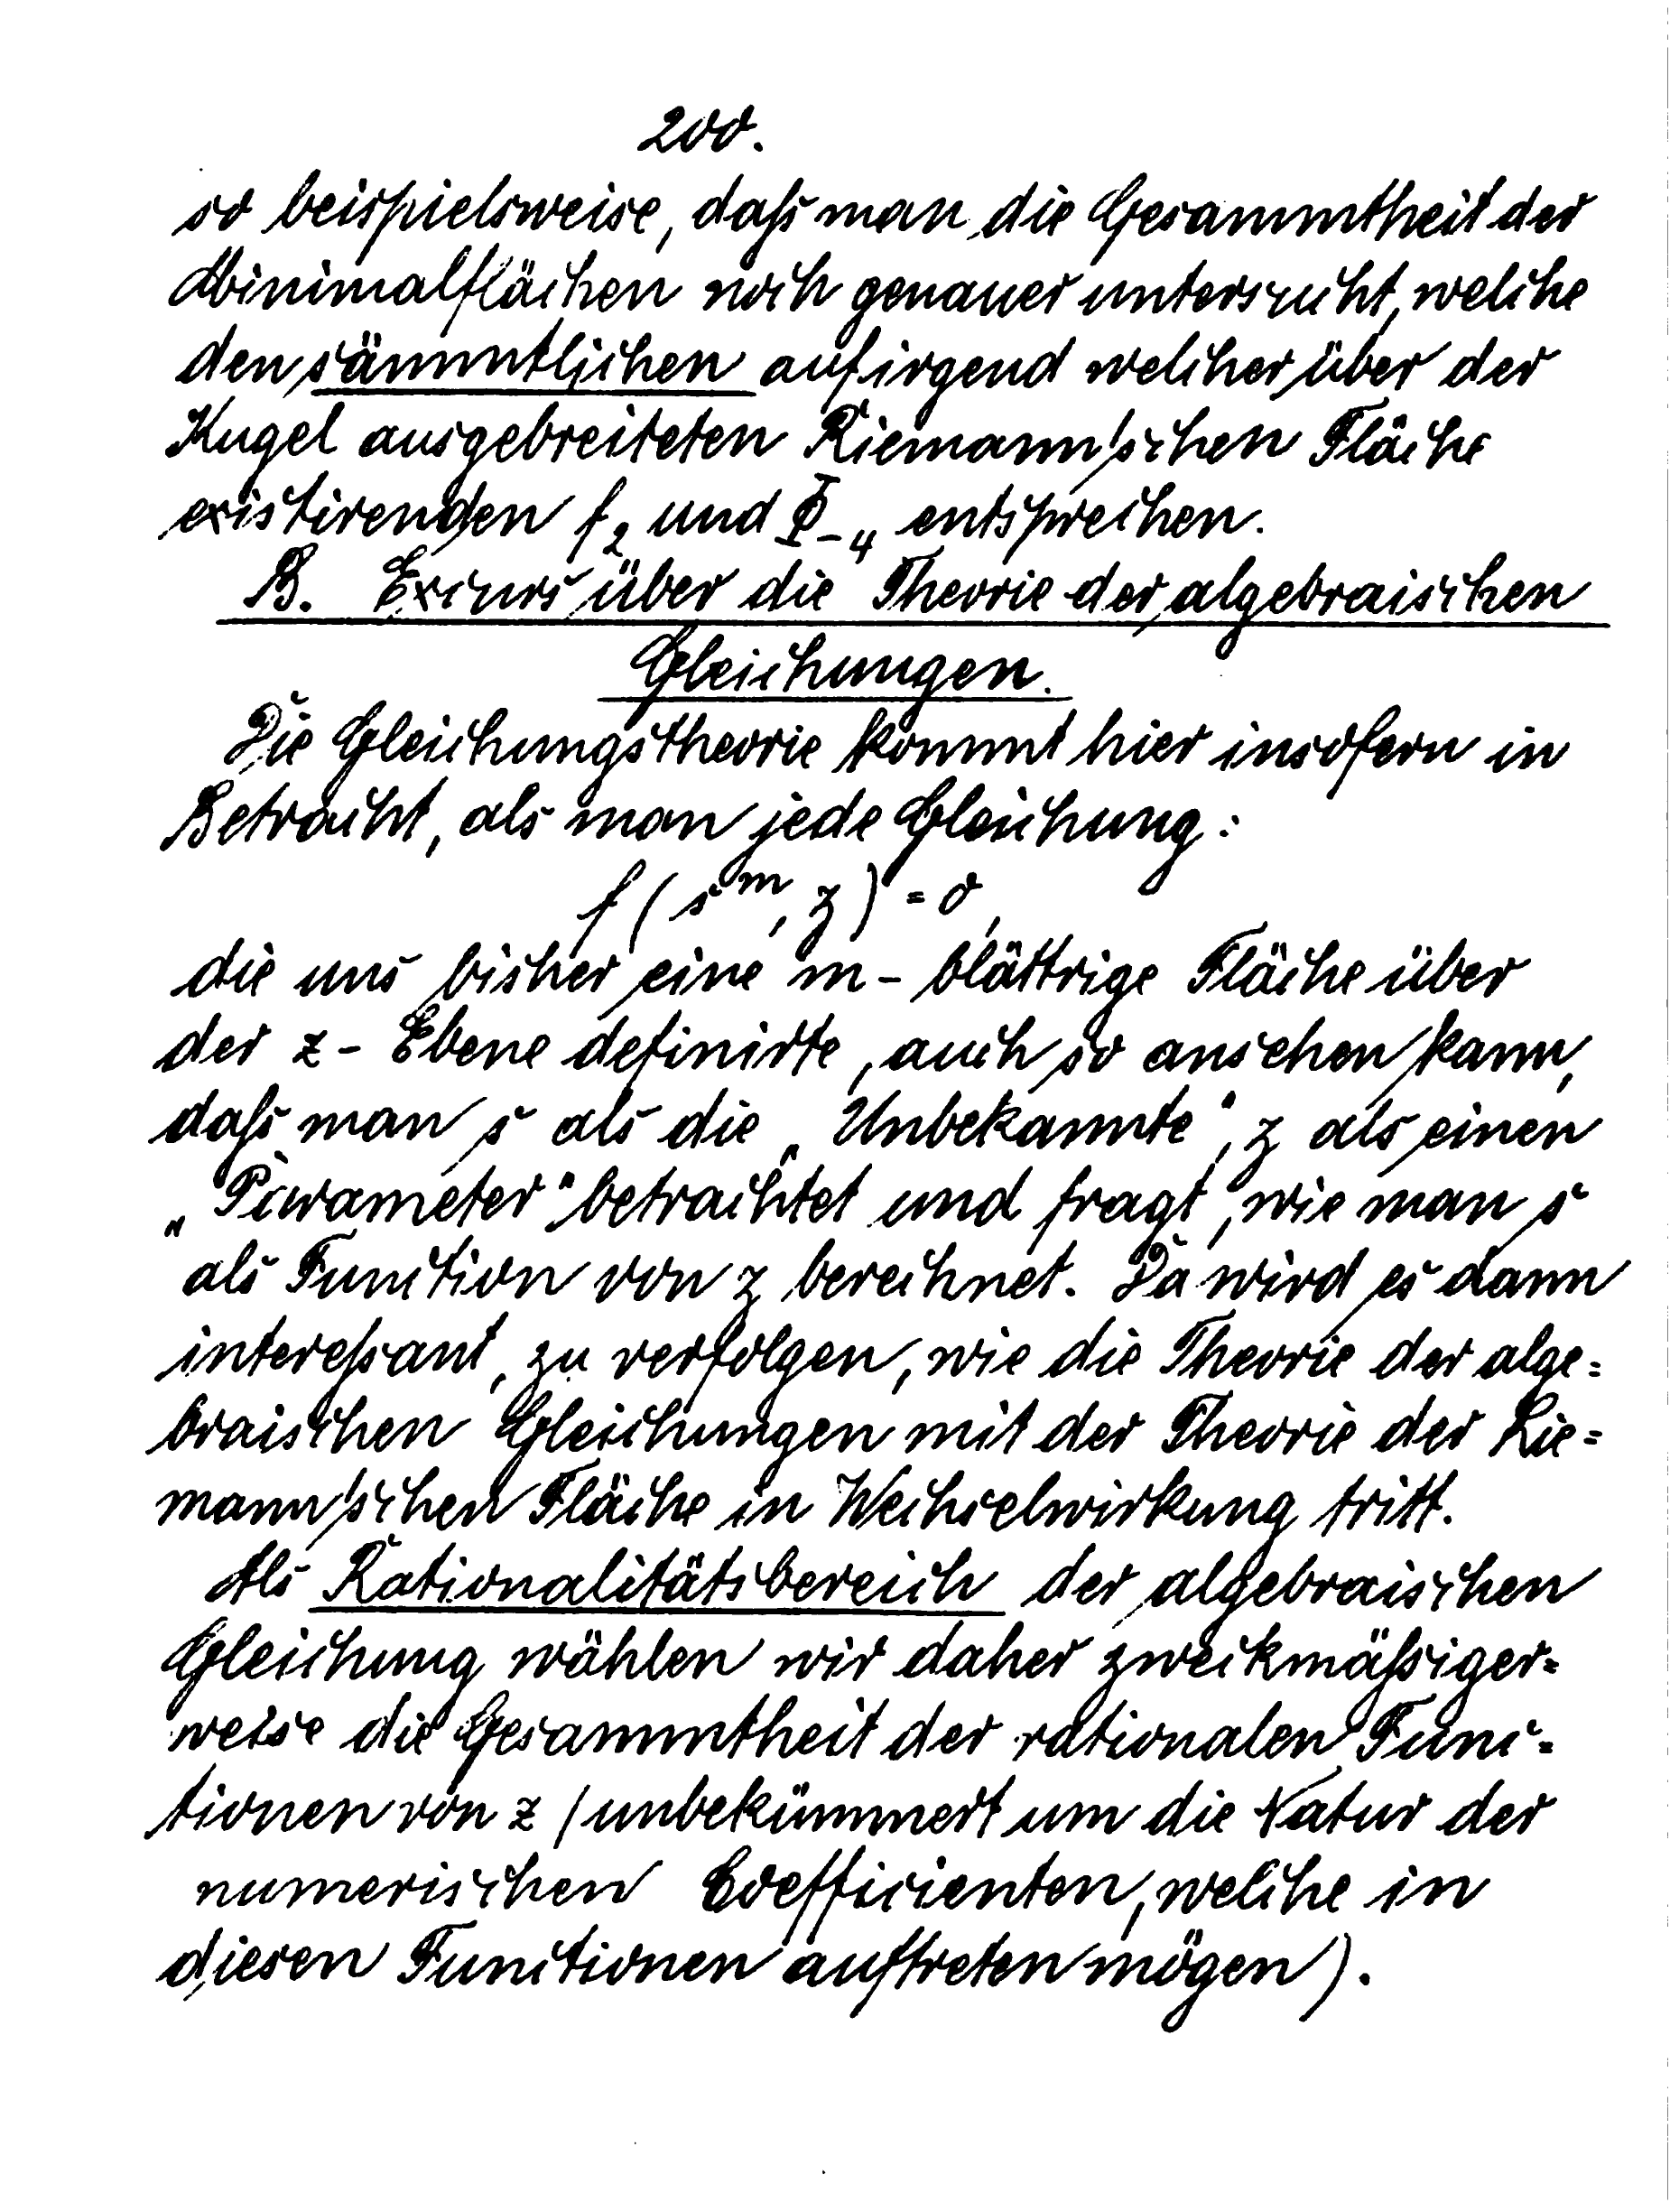 200.
so beispielsweise, daſs man die Gesammtheit der
Minimalflächen noch genauer untersucht, welche
den sämmtlichen auf irgend welcher über der
Kugel ausgebreiteten Riemann'schen Fläche
existirenden f₂ und Φ₋₄ entsprechen.
B. Excurs über die Theorie der algebraischen
Gleichungen.
Die Gleichungstheorie kommt hier insofern in
Betracht, als man jede Gleichung:
f(s^m, z) = 0,
die uns bisher eine m-blättrige Fläche über
der z-Ebene definirte, auch so ansehen kann,
daſs man s als die „Unbekannte“, z als einen
„Parameter“ betrachtet und fragt, wie man s
als Function von z berechnet. Da wird es dann
intereſsant, zu verfolgen, wie die Theorie der alge=
braischen Gleichungen mit der Theorie der Rie=
mann'schen Fläche in Wechselwirkung tritt.
Als Rationalitätsbereich der algebraischen
Gleichung wählen wir daher zweckmäſsiger=
weise die Gesammtheit der rationalen Func=
tionen von z (unbekümmert um die Natur der
numerischen Coefficienten, welche in
diesen Functionen auftreten mögen).